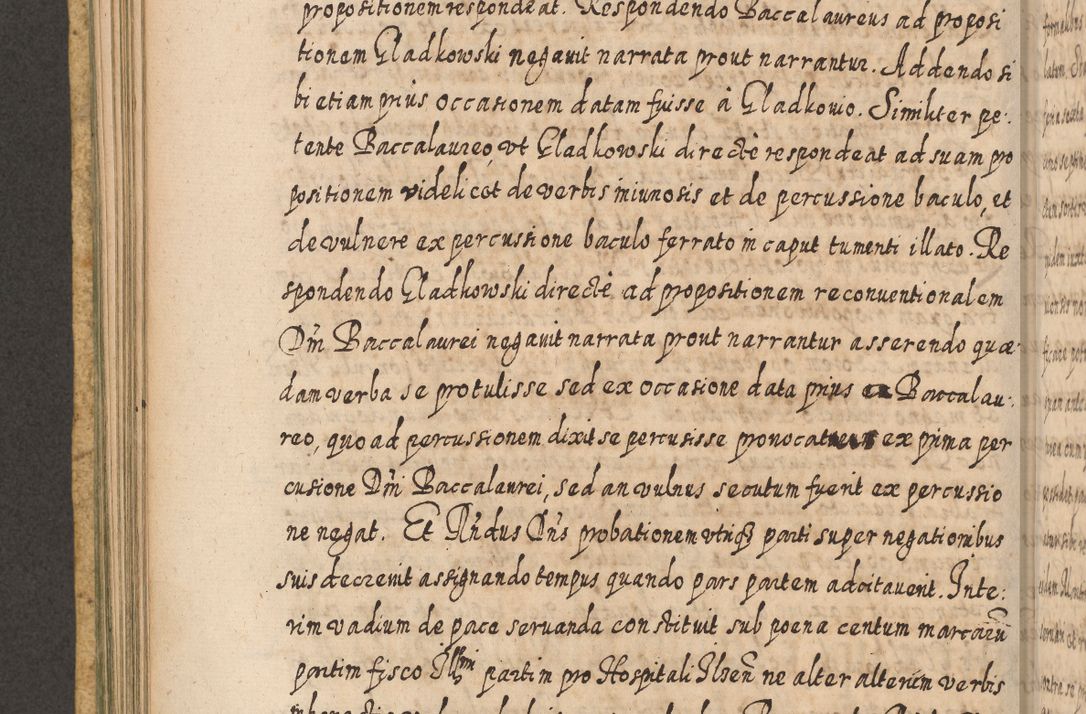 propositionem respondeat. Respondendo Baccalaureus ad proposi
tionem Gladkowski negauit narrata prout narrantur. Addendo si
bi etiam prius occasionem datam fuisse â Gladkouio. Similiter pe:
tente Baccalaureo, vt Gladkowski directè respondeat ad suam pro
positionem videlicet de verbis iniuriosis et de percussione baculo, et
de vulnere ex percussione baculo ferrato in caput tumenti illato. Re
spondendo Gladkowski directè ad propositionem reconuentionalem
Dñi Baccalaurei negauit narrata prout narrantur asserendo quæ
dam verba se protulisse sed ex occasione data prius ex Baccalau:
reo, quo ad percussionem dixit se percusisse prouocatus ex prima per
cusione Dñi Baccalaurei, sed an vulnus secutum fuerit ex percussio
ne negat. Et Rñdus Dñs probationem vtriq3 parti super negationibus
suis decreuit assignando tempus quando pars partem adcitauerit. Inte:
rim vadium de pace seruanda constituit sub poena centum marcarũ
partim fisco Illmi partim pro Hospitali Ilzeñ ne alter alterum verbis